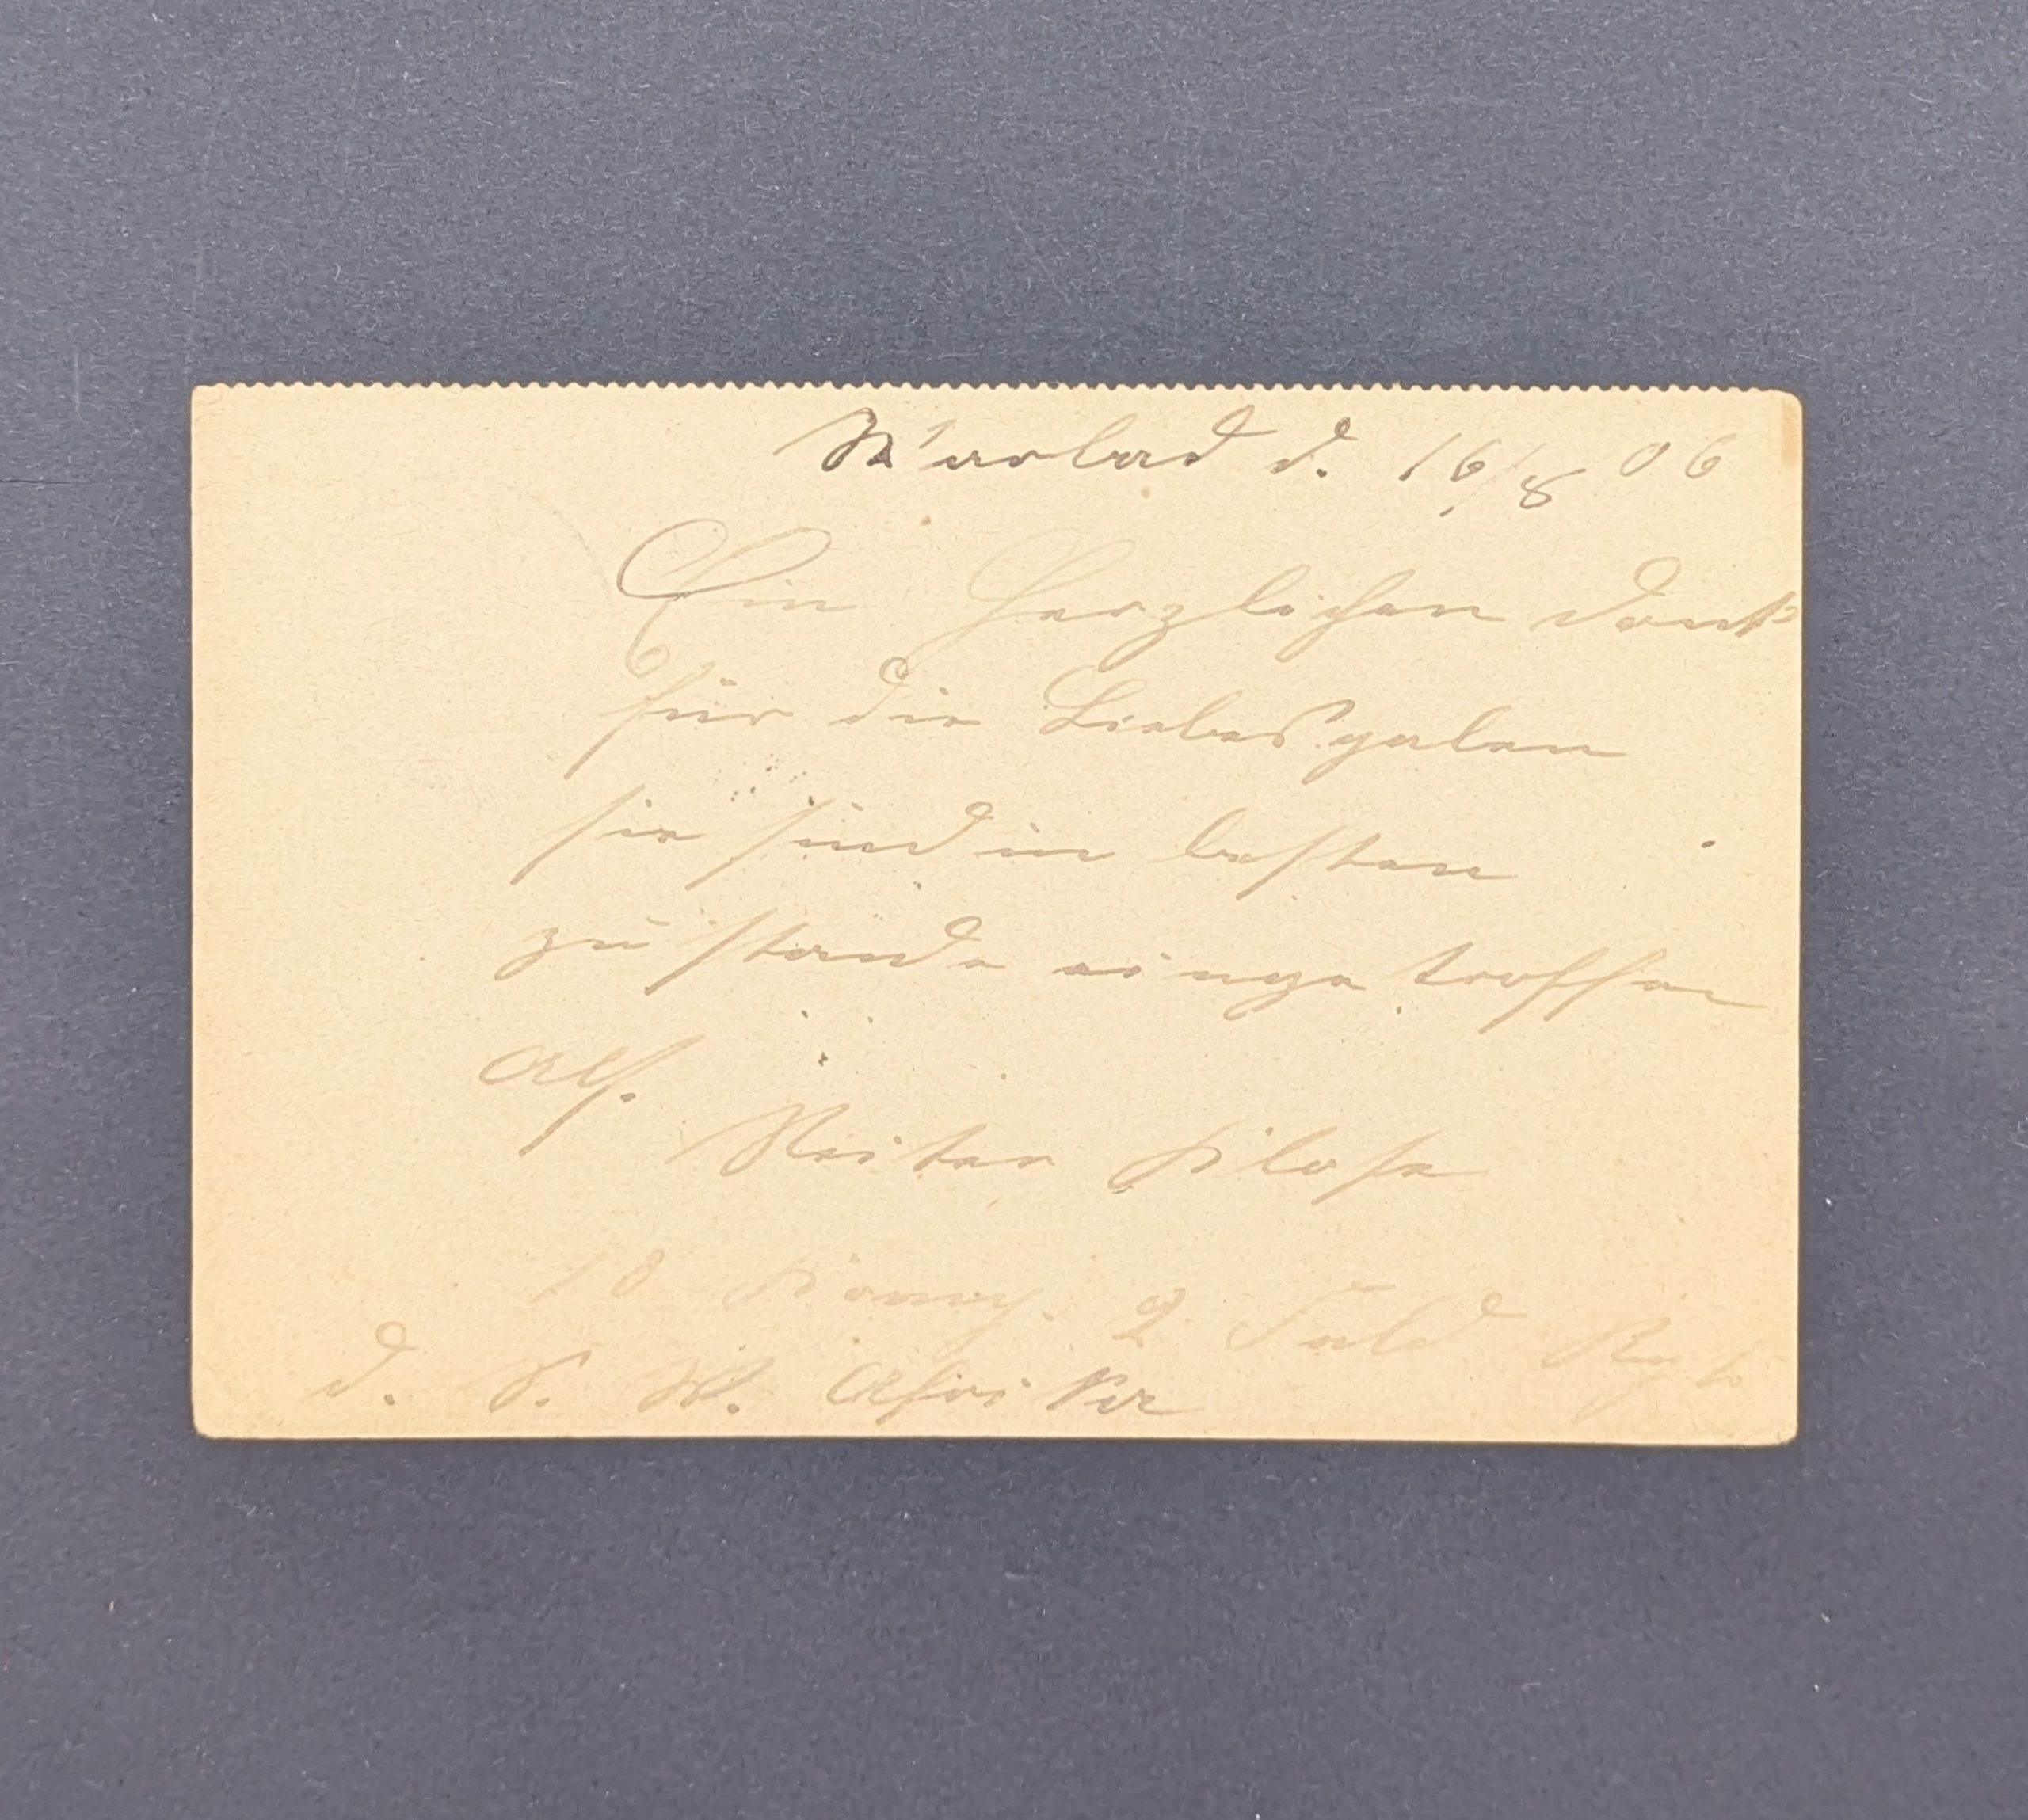 Warbad d. 16/8 06
Ein Herzlichen Dank
für die Liebesgaben
sie sind in besten
zustande einge troffen
Abs.
Reiter
10 Komp. 2 Feld Rgt
d. S. W. Afrika